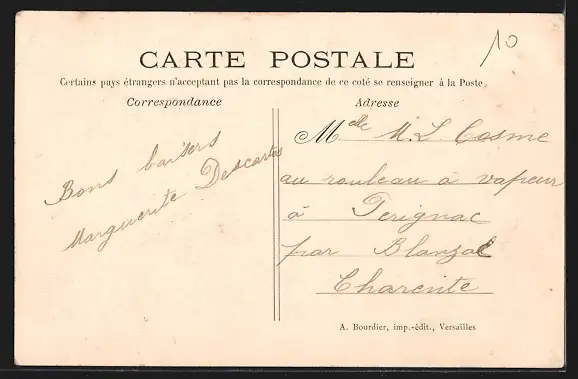 10
CARTE POSTALE
Certains pays étrangers n'acceptant pas la correspondance de ce coté se renseigner à la Poste.
Correspondance
Bons baisers
Marguerite Descartes
Adresse
Melle M. L Cosme
au rouleau à vapeur
à Perignac
par Blanzac
Charente
A. Bourdier, imp.-édit., Versailles